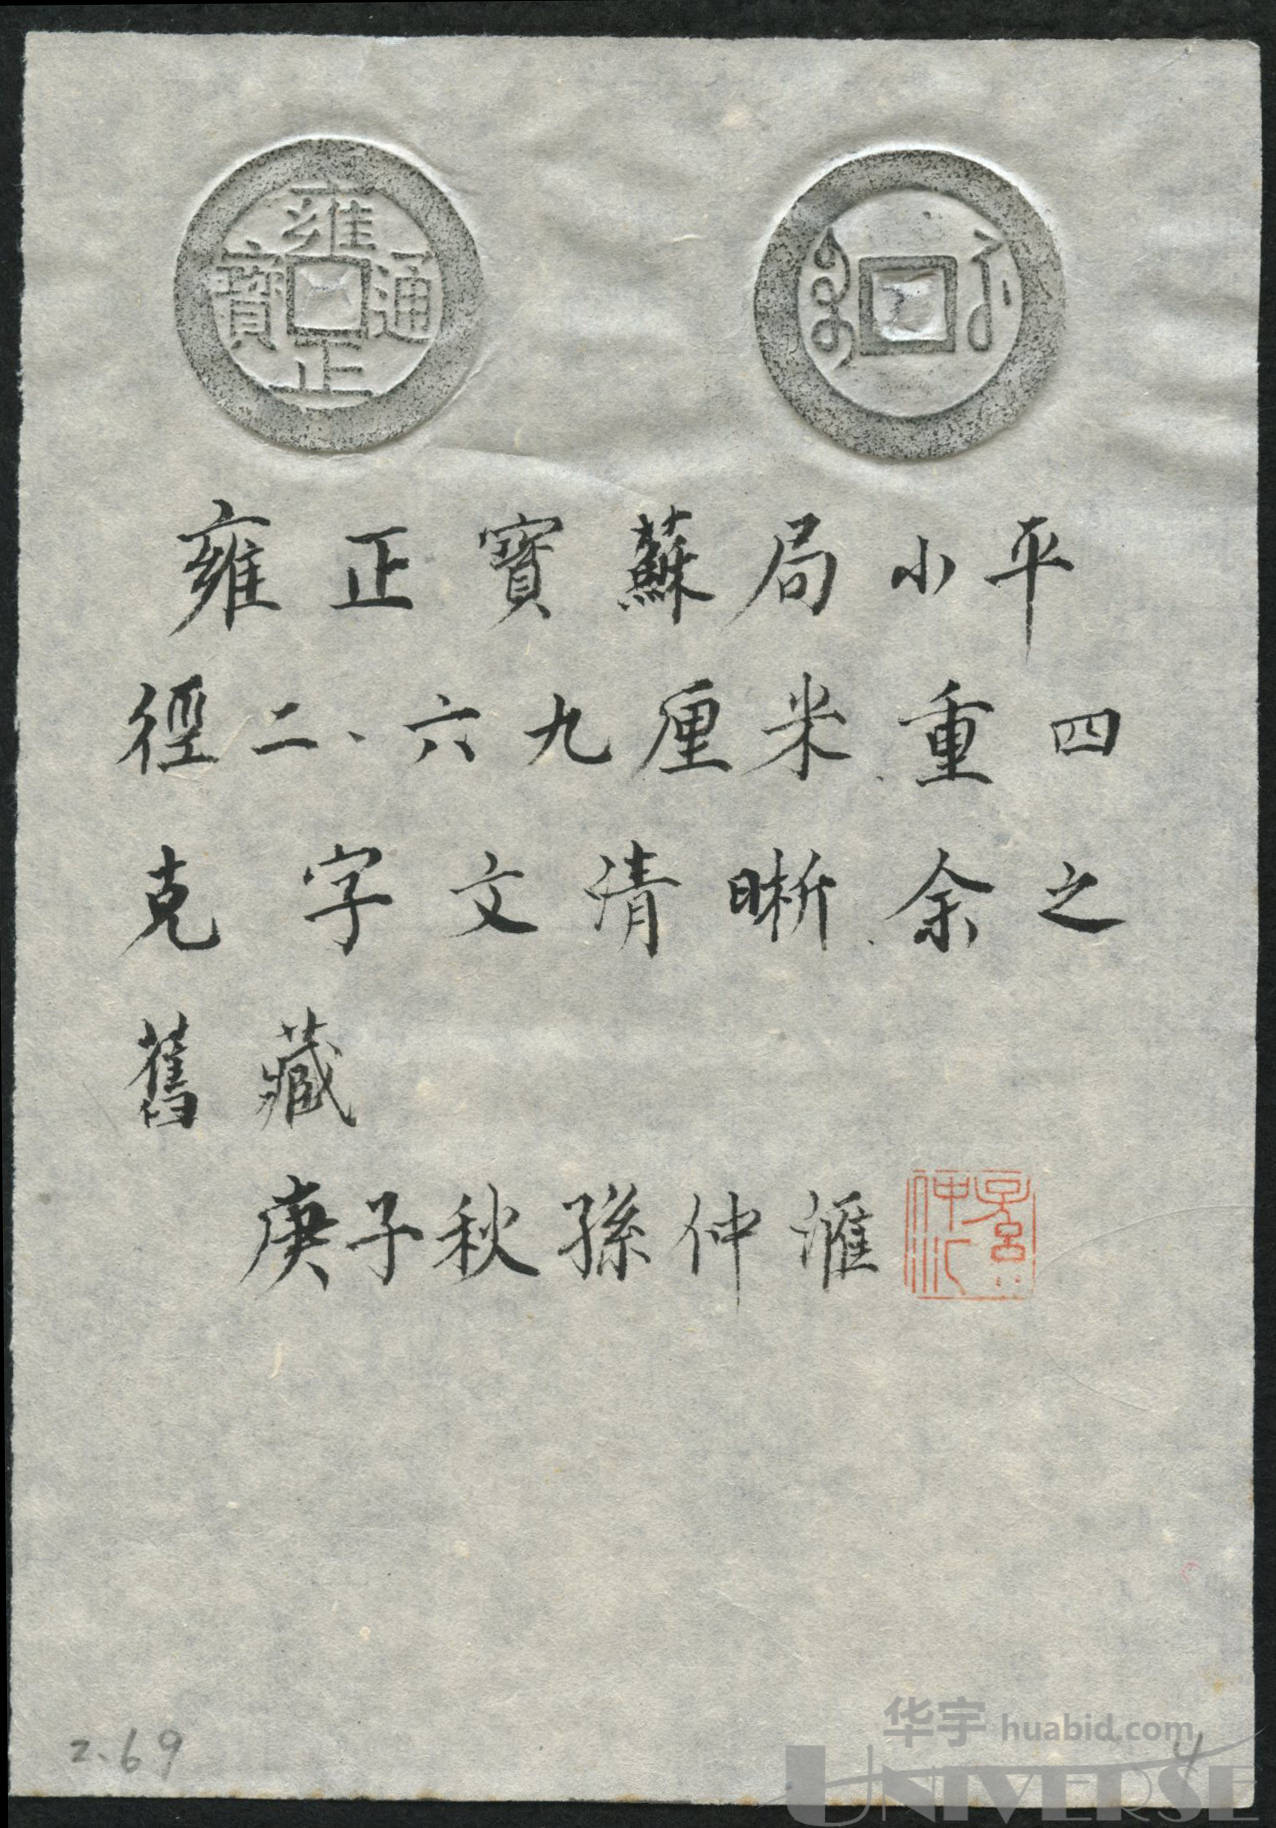 雍正通寶
雍正寶蘇局小平
徑二、六九厘米重四
克字文清晰余之
舊藏
庚子秋孫仲滙
2.69
4
华宇 huabid.com
UNIVERSE